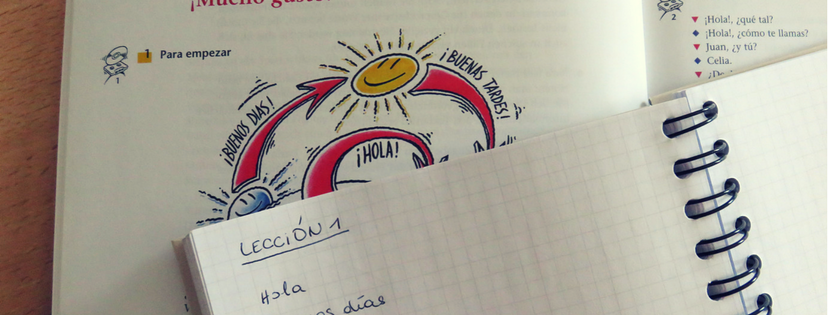 ¡Mucho gusto
1 Para empezar
1
¡BUENOS DÍAS!
¡BUENAS TARDES!
¡HOLA!
2
¡Hola!, ¿qué tal?
¡Hola!, ¿cómo te llamas?
Juan, ¿y tú?
Celia.
LECCIÓN 1
Hola
días